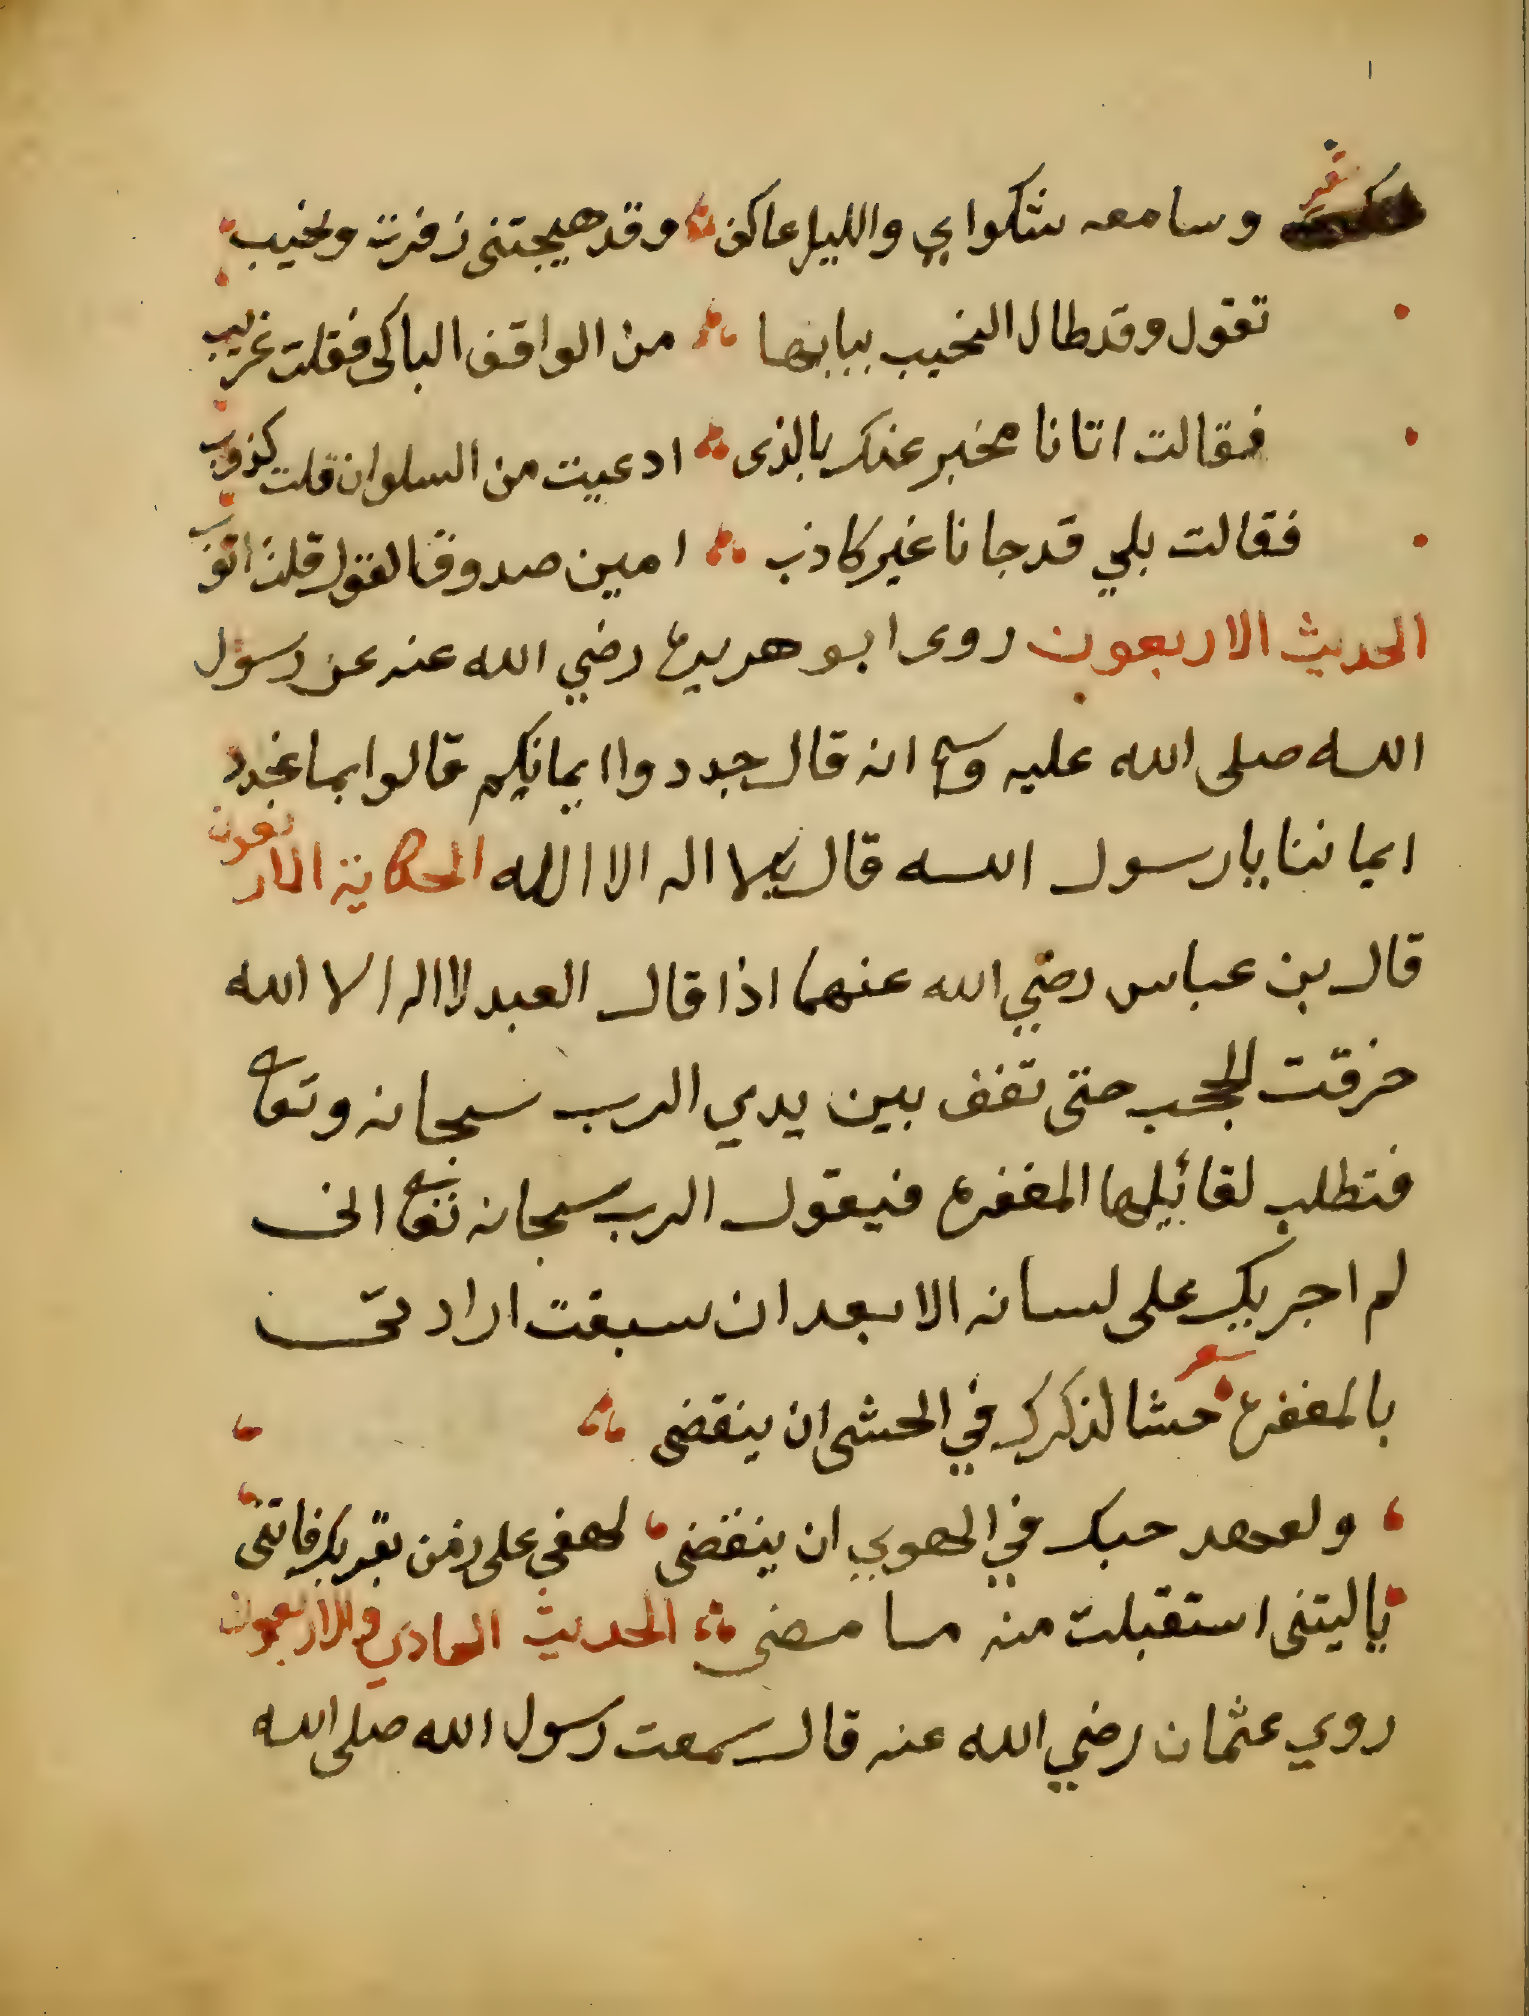 غيره وسامعه شكواي والليل عاكف وقد هيجتنى زفرت ونحيب
تقول وقد طال النحيب ببابها من الواقف الباكى فقلت غريب
فقالت اتانا مخبر عنك بالذى ادعيت من السلوان قلت كذوب
فقالت بلي قد جانا غير كاذب امين صدوق القول قلت اتوب
الحديث الاربعون روى ابو هريره رضي الله عنه عن رسول
الله صلى الله عليه وسلم انه قال جددوا ايمانكم قالوا بما نجدد
ايماننا يا رسول الله قال بلا اله الا الله الحكاية الاربعون
قال بن عباس رضي الله عنهما اذا قال العبد لا اله الا الله
خرقت الحجب حتى تقف بين يدي الرب سبحانه وتعا
فتطلب لقائيلها المغفره فيقول الرب سبحانه تعا انى
لم اجريك على لسانه الا بعد ان سبقت ارادتى
بالمغفره شعر حشا لذكرك في الحشى ان ينقضى
ولعهد حبك في الهوي ان ينقضى لهفى على زمن بقربك فاتنى
ياليتنى استقبلت منه ما مضى الحديث الحادي والاربعون
روي عثمان رضي الله عنه قال سمعت رسول الله صلى الله